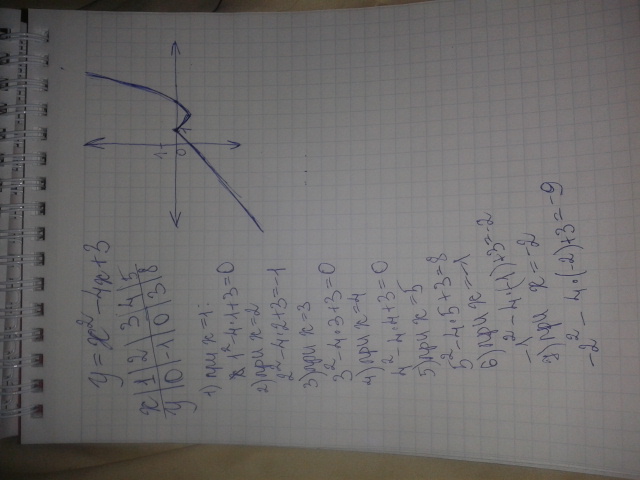 y = x² - 4x + 3
x | 1 | 2 | 3 | 4 | 5
y | 0 | -1 | 0 | 3 | 8
1) при x=1:
1² - 4·1 + 3 = 0
2) при x=2
2² - 4·2 + 3 = -1
3) при x=3
3² - 4·3 + 3 = 0
4) при x=4
4² - 4·4 + 3 = 0
5) при x=5
5² - 4·5 + 3 = 8
6) при x=-1
-1² - 4·(-1) + 3 = -2
7) при x=-2
-2² - 4·(-2) + 3 = -9
1
0
1